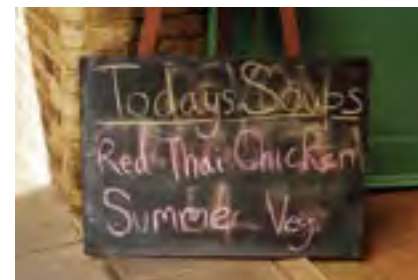 Today's Soups
Red Thai Chicken
Summer Veg.